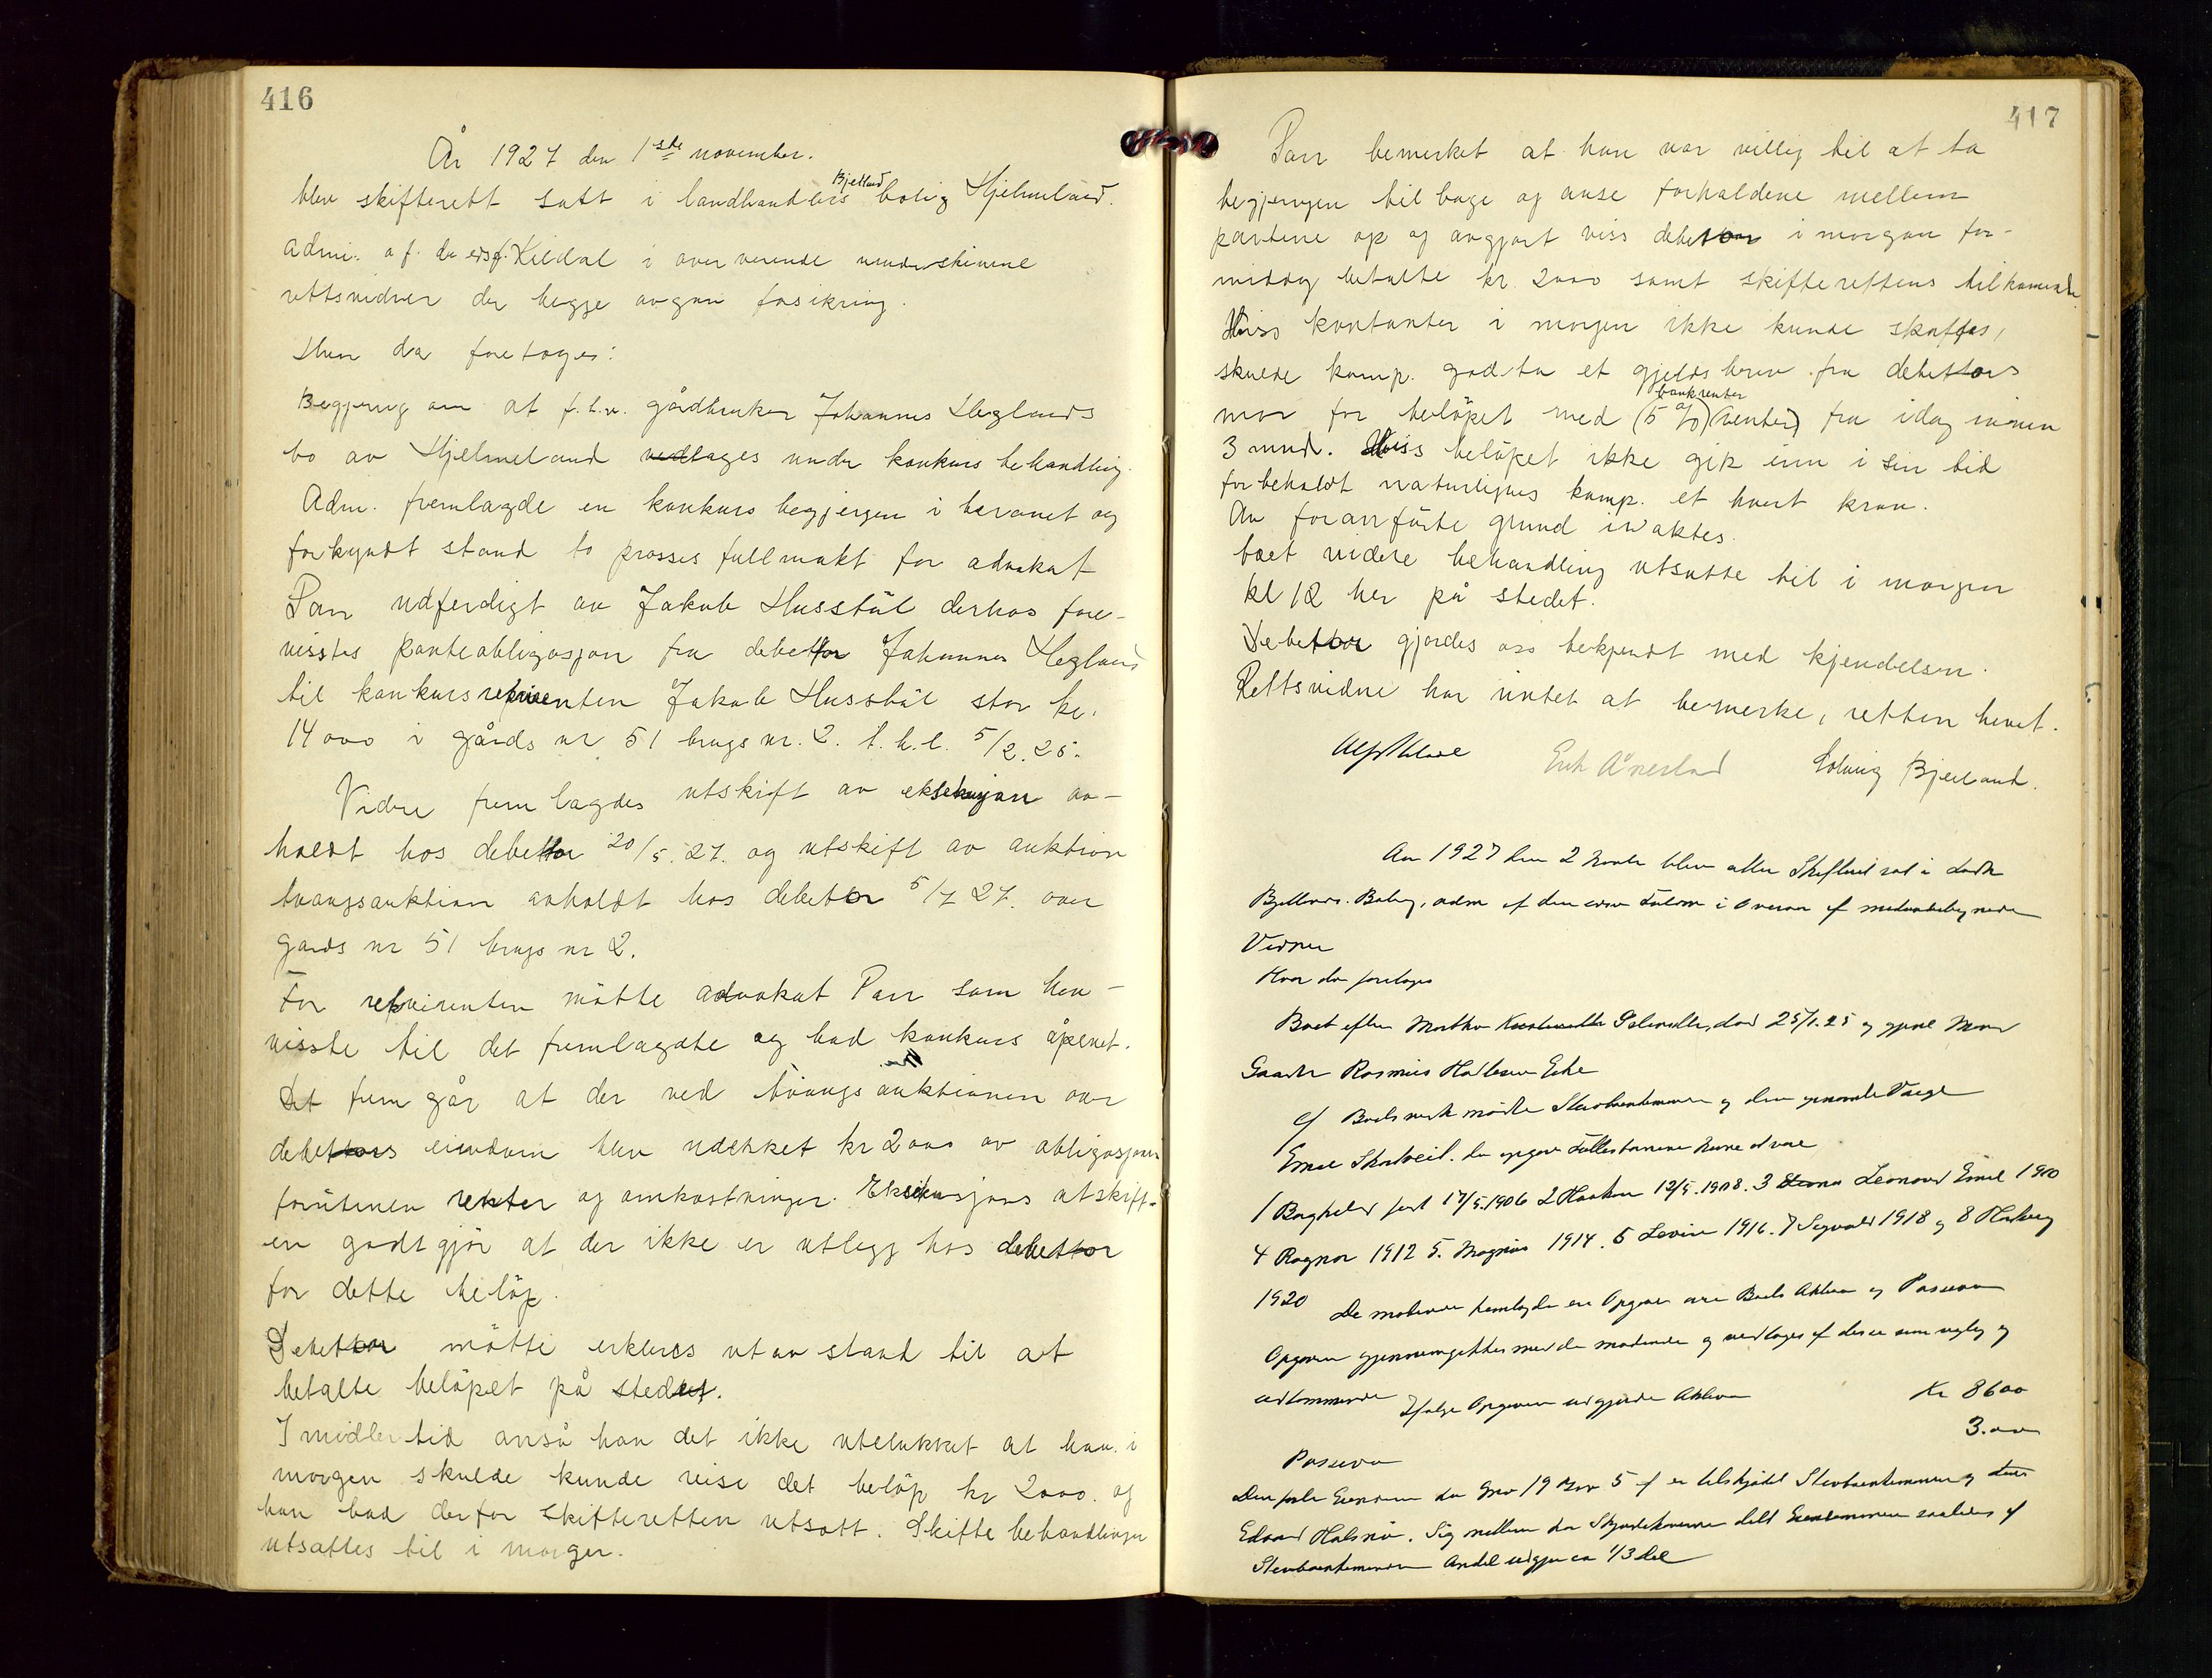 416
År 1927 den 1ste november.
blev skifterett satt i landhandler Bjelland's bolig Hjelmeland.
admi. af. de ersf. Kildal i oververende
rettsvidner der begge avgav forsikring.
Hvor da foretoges:
Begjering om at f.h.v. gårdbruker Johannes Heglands
bo av Hjelmeland vedtages under konkurs behandling.
Adm. fremlagde en konkurs begjergen i beramet og
forkyndt stand to prosses fullmakt for advokat
Parr udferdigt av Jakob Husstøl derhos fore-
visstes panteobligasjon fra debettor Johannes Hegland
til konkursrekvirenten Jakob Husstøl stor kr.
14000 i gårds nr 51 brugs nr. 2. t.h.l. 5/2.25.
Vidre frem lagdes utskift av eksekusjon av-
holdt hos debettor 20/5.27. og utskift av auktion
tvangsauktion avholdt hos debettor 5/7 27. over
gards nr 51 brugs nr 2.
For rekvirenten mötte advokat Parr som hen-
visste til det fremlagdte og bad konkurs åpenet.
Det frem går at der ved tvangs auktionen over
debettors eiendom blev udekket kr 2000 av obligasjonen
forutenen renter og omkostninger. Eksekusjons utskift-
en godtgjör at der ikke er utlegg hos debettor
for dette belöp.
Debettor måtte erkleres ut av stand til at
betalte belöpet på stedet.
Imidlertid anså han det ikke utelukket at han i
morgen skulde kunde reise det belöp kr 2000. og
han bad derfor skifteretten utsatt. Skifte behandlingen
utsattes til i morgen.
417
Parr bemerket at han var villig til at ta
begjergen til bage og anse forholdene mellem
partene op og avgjort viss debettor i morgen for-
middag betalte kr. 2000 samt skifterettens tilkomende
Hviss kontanter i morgen ikke kunde skaffes,
skulde komp. godta et gjelds brev fra debettors
mor for belöpet med (5 % bankrenter) (renter) fra idag innen
3 mnd. Hviss belöpet ikke gik inn i sin tid
forbeholdt naturligvis komp. et hvert krav.
Av foranförte grund
boet videre behandling utsatte til i morgen
kl 12 her på stedet.
Debettor gjordes oss bekjendt med kjendelsen.
Rettsvidne har intet at bemerke, retten hevet.
Alf Kildal Erik Ånestad Solveig Bjelland.
Aar 1927 den 2 Novbr blev atter Skifteret sat i Landh
Bjellands Bolig, adm af den
Vidner
Hvor da foretoges
Boet efter Martha død 25/1.25 og gjenl Mand
Gaardbr Rasmus
af Boets mødte Stervboenkemannen og den opnævnte Værge
Emil Skartveit. De opgav Fællesbarnene kune at være
1 Borghild født 17/5.1906 2 Haakon 12/5.1908. 3 Leonard Emil 1910
4 Ragnar 1912 5. Magnus 1914. 6 Lovise 1916. 7 Sigvald 1918 og 8
1920 De mødende fremlagde en Opgave over Boets Aktiva og Passiva
Opgaven gjennemgikkes med de mødende og vedtoges af disse som rigtig og
udtømmende Ifølge Opgaven udgjorde Aktiva Kr 8600
Passiva 3.00
Den faste Eiendom Gno 19 Bno 5 f er tilskjødet Stervboenkemannen og
Edvard Halsnø. Sig mellem har Skjødehaverne delt Eiendommen saaledes at
Stervboenkemannens Andel udgjør ca 1/3 del